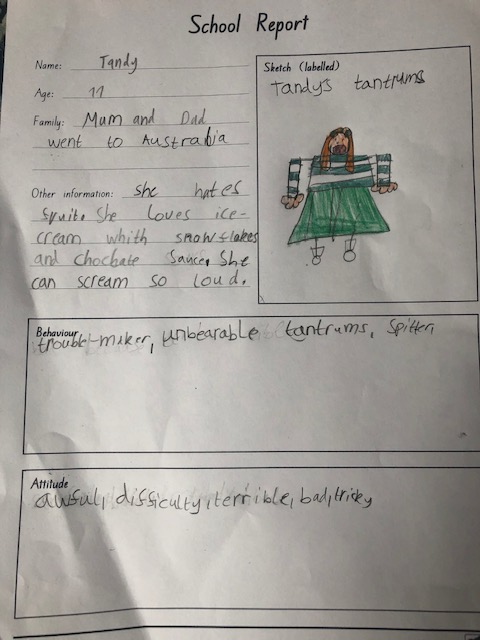 School Report
Name: Tandy
Age: 11
Family: Mum and Dad
went to Australia
Other information: she hates
fruit. She loves ice-
cream whith snowflakes
and chocbate sauce. She
can scream so loud.
Sketch (labelled)
Tandy's tantrums
Behaviour
trouble-maker, unbearable tantrums, Spitter,
Attitude
awful, difficulty, terrible, bad, tricky